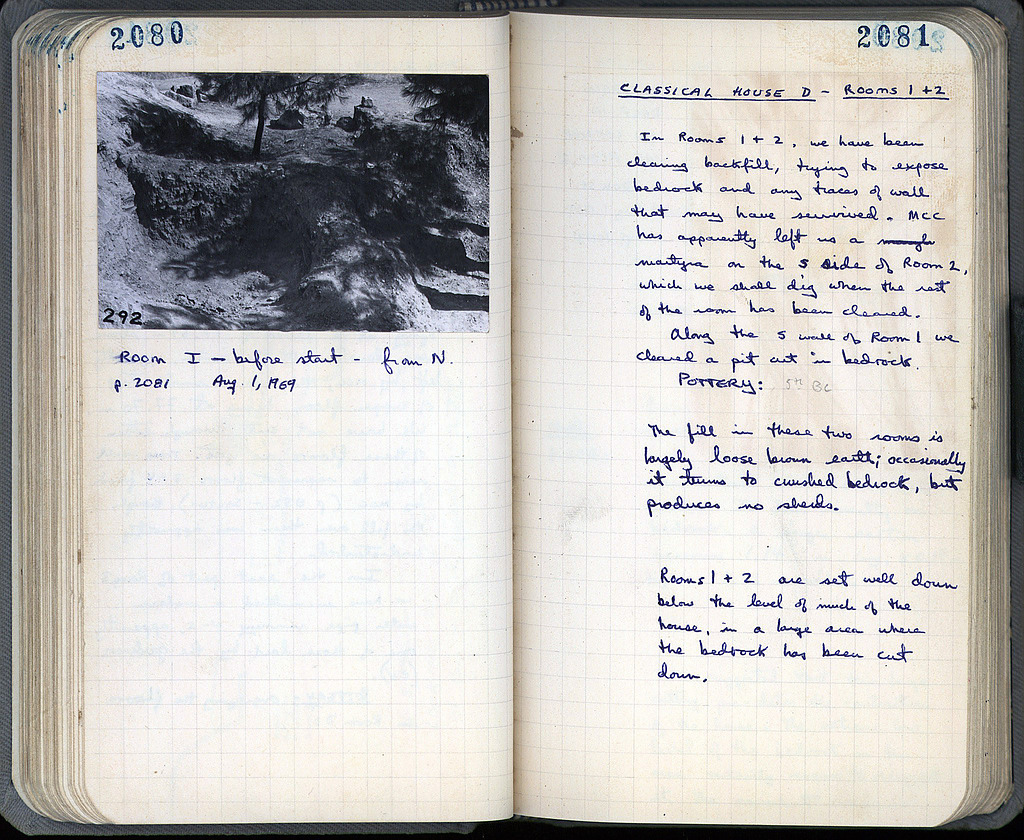 2080
292
Room I — before start - from N.
p. 2081 Aug. 1, 1969
2081
CLASSICAL HOUSE D - ROOMS 1 + 2
In Rooms 1 + 2, we have been
clearing backfill, trying to expose
bedrock and any traces of wall
that may have survived. MCC
has apparently left us a
martyra on the S side of Room 2,
which we shall dig when the rest
of the room has been cleared.
Along the S wall of Room 1 we
cleared a pit cut in bedrock.
POTTERY: 5th BC
The fill in these two rooms is
largely loose brown earth; occasionally
it turns to crushed bedrock, but
produces no sherds.
Rooms 1 + 2 are set well down
below the level of much of the
house, in a large area where
the bedrock has been cut
down.